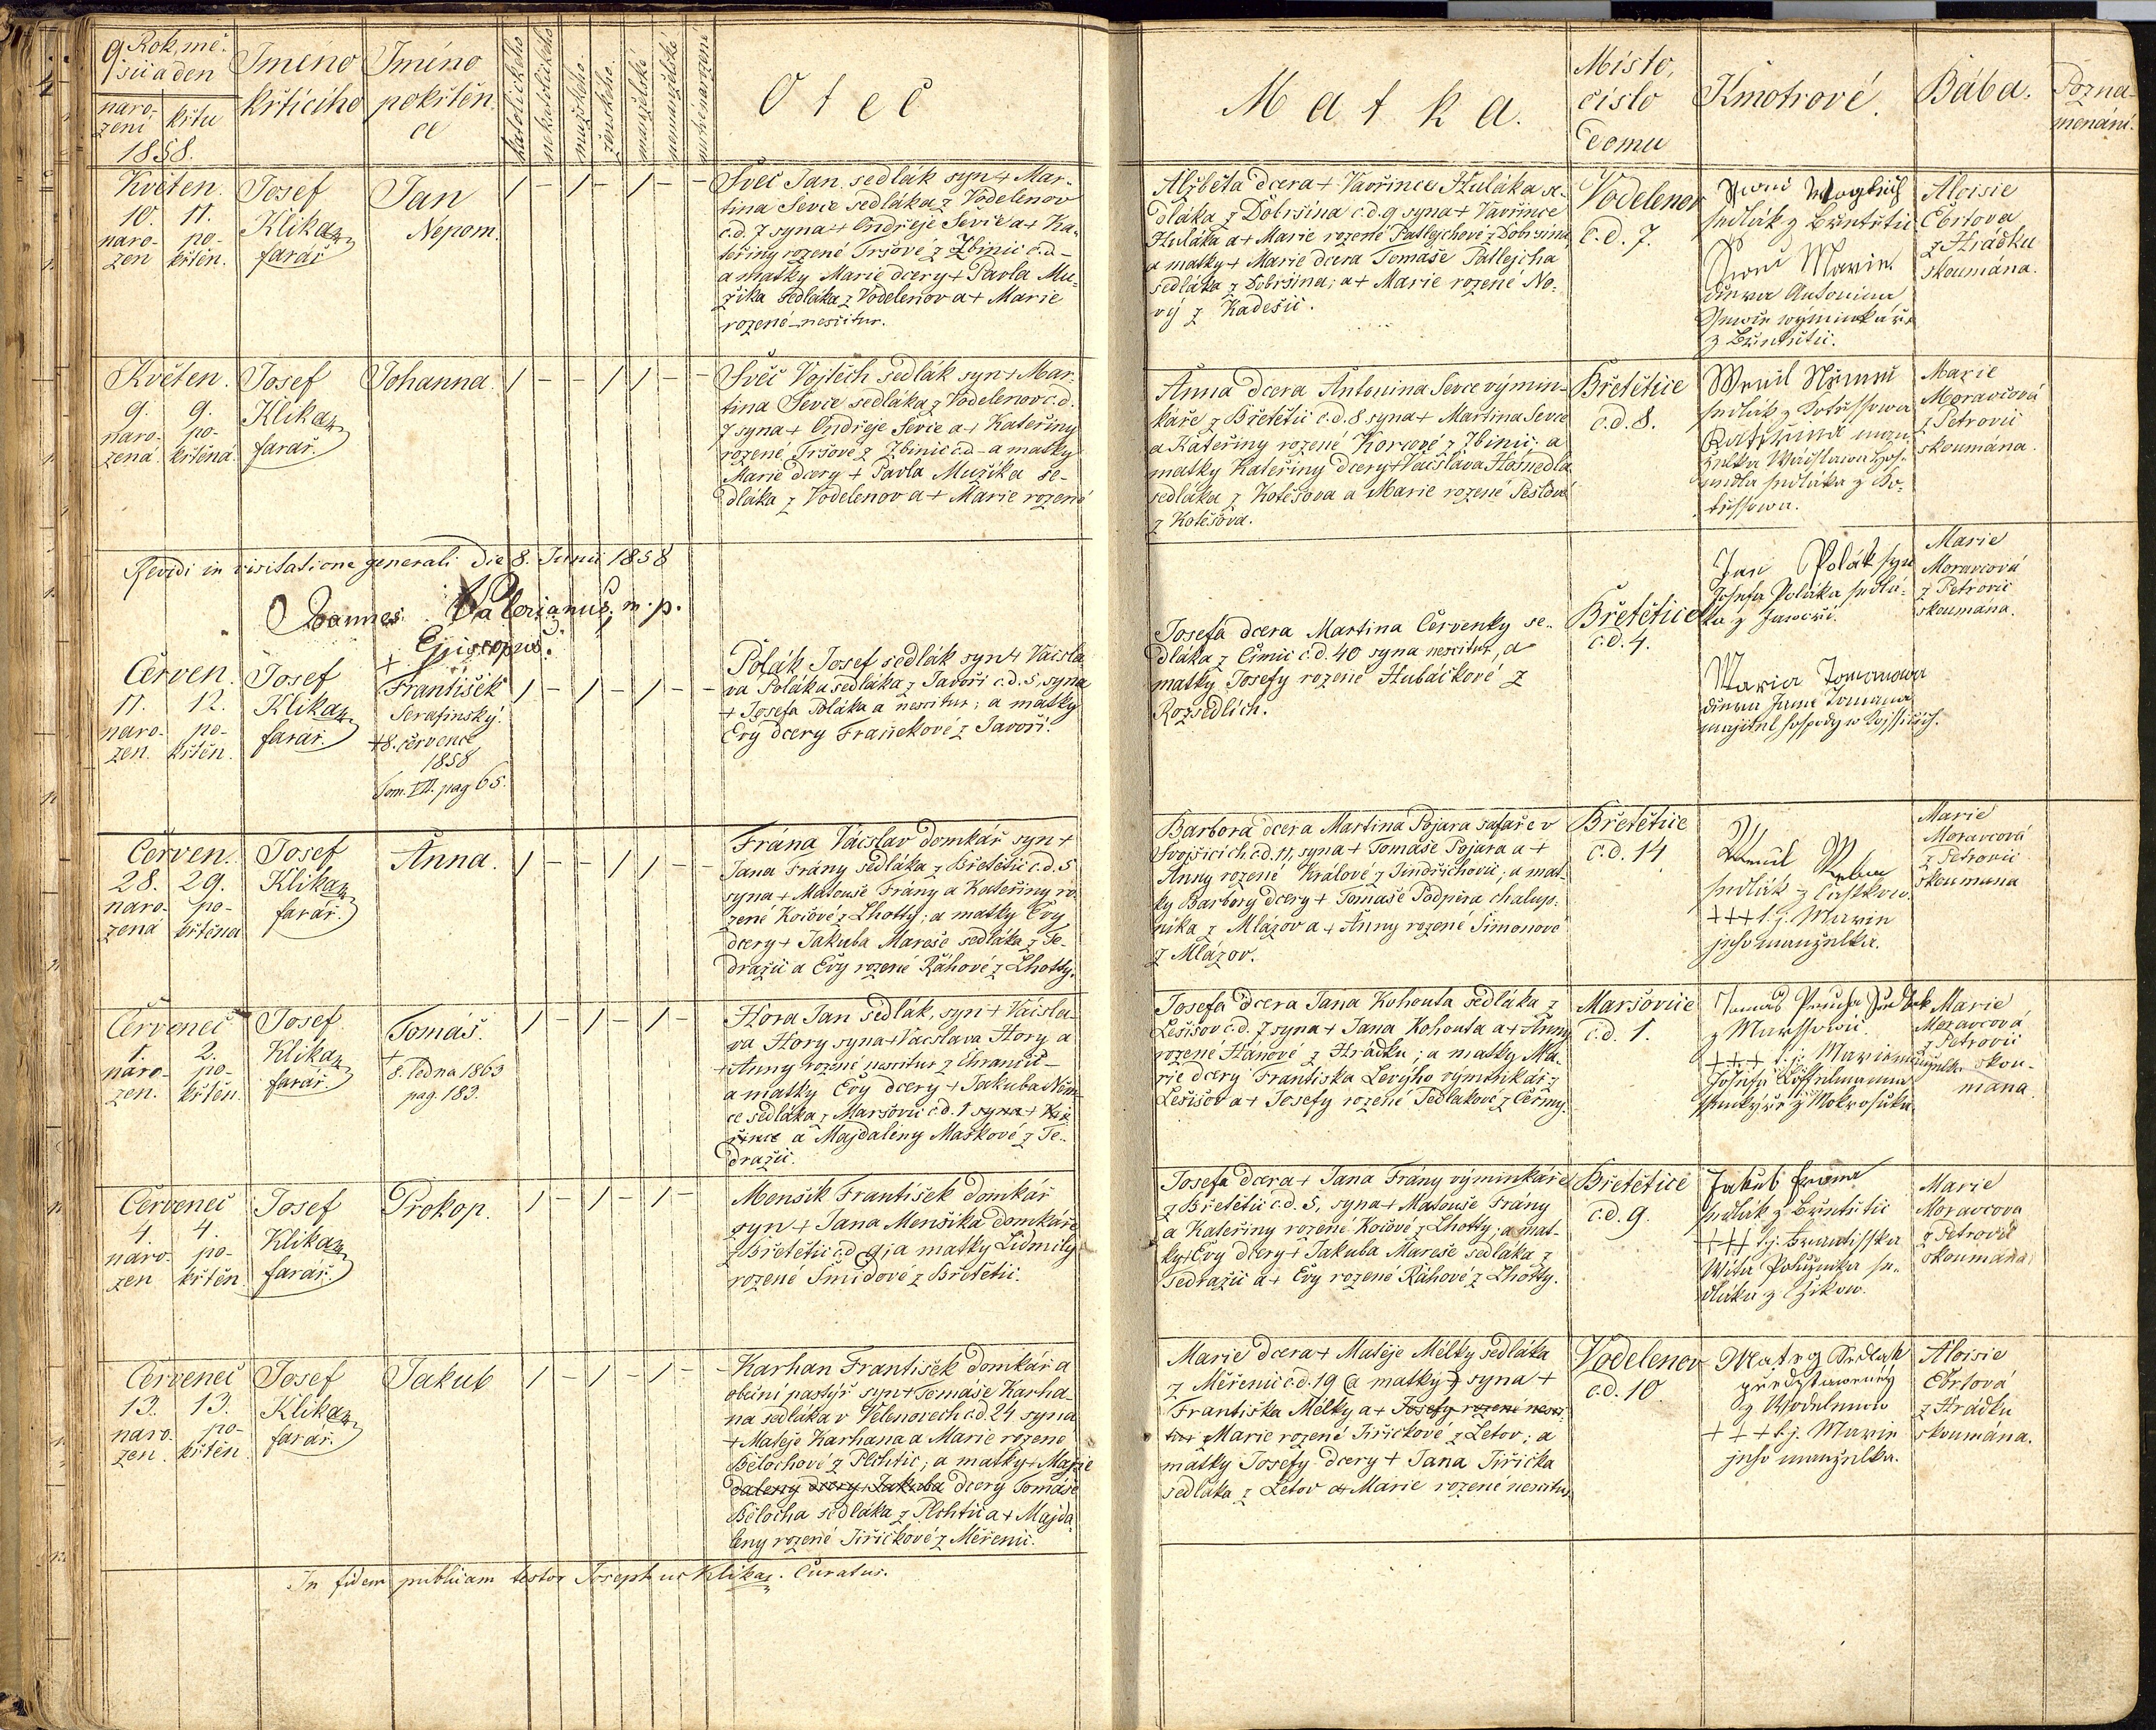 9
Rok, mě-
síc a den
naro-
zení
křtu
1858.
Jméno
křtícího
Jméno
pokřtěn-
ce
katolického
nekatolického
mužského
ženského
manželské
nemanželské
Otec
Matka.
Místo,
číslo
domu
Kmotrové.
Bába.
Pozna-
menání.
Květen.
10. 11.
naro- po-
zen křtěn.
Josef
Klika
farář
Jan
Nepom.
/ - / - / - -
Švec Jan sedlák syn + Mar-
tina Ševce sedláka z Vodelenov
č.d. 7 syna + Ondřeje Ševce a + Ka-
teřiny rozené Tršové z Zbinic č.d. -
a matky Marie dcery + Pavla Mu-
žika sedláka z Vodelenov a + Marie
rozené nescitur.
Alžběta dcera + Vavřince Huláka se-
dláka z Dobršína č.d. 9 syna + Vavřince
Huláka a + Marie rozené Patlejchové z Dobršína
a matky + Marie dcera Tomáše Patlejcha
sedláka z Dobršína; a + Marie rozené No-
vý z Kadešic.
Vodelenov
č.d. 7.
sedlák z Břetětic
Marie
dcera Antonína
z Břetětic.
Aloisie
Ebrtova
z Hrádku
skoumána.
Květen.
9. 9.
naro- po-
zená. křtěná.
Josef
Klika
farář.
Johanna.
/ - - / / - -
Švec Vojtěch sedlák syn + Mar-
tina Ševce sedláka z Vodelenov č.d.
7 syna + Ondřeje Ševce a + Kateřiny
rozené Tršové z Zbinic č.d - a matky
Marie dcery + Pavla Mužíka se-
dláka z Vodelenov a + Marie rozené
Anna dcera Antonína Ševce výmin-
káře z Břetětic č.d. 8 syna + Martina Ševce
a Kateřiny rozené Korcové z Zbinic a
matky Kateřiny dcery + Václava Hosmedla
sedláka z Kotěšova a Marie rozené Pešlové
z Kotěšova.
Břetětice
č.d. 8.
sedlák z Kotěssowa
Kateřina man-
želka Wácslawa Hos-
medla sedláka z Ko-
těssowa.
Marie
Moravcová
z Petrovic
skoumána.
Revidi in visitatione generali die 8. Junii 1858
Joannes Valerianus, m. p.
Episcopus.
Červen.
11. 12.
naro- po-
zen. křtěn.
Josef
Klika
farář.
+
František
Serafinský.
+8. července
1858
Tom. III. pag 65.
/ - / - / - -
Polák Josef sedlák syn + Václa-
va Poláka sedláka z Javoří č.d. 5. syna
+ Josefa Poláka a nescitur; a matky
Evy dcery Franěkové z Javoří.
Josefa dcera Martina Červenky se-
dláka z Čimic č.d. 40 syna nescitur, a
matky Josefy rozené Hubáčkové z
Rozsedlích.
Břetětice
č.d. 4.
Jan Polák syn
Josefa Poláka sedlá-
ka z Jaworí.
Maria Tomanowa
dcera Jana Tomana
majitel hospody w
Marie
Moravcová
z Petrovic
skoumána.
Červen.
28. 29.
naro- po-
zená křtěna
Josef
Klika
farář.
Anna.
/ - - / / - -
Frána Václav domkář syn +
Jana Frány sedláka z Břetětic č.d. 5
syna + Matouše Frány a Kateřiny ro-
zené Kočové z Lhotty; a matky Evy
dcery + Jakuba Mareše sedláka z Te-
dražic a Evy rozené Ráhové z Lhotty.
Barbora dcera Martina Pojara šafaře v
Svojšicích č.d. 11, syna + Tomáše Pojara a +
Anny rozené Králové z Jindřichovic; a mat-
ky Barbory dcery + Tomáše Podpěra chalup-
níka z Mlázov a + Anny rozené Šimonové
z Mlázov.
Břetětice
č.d. 14
sedlák z
+++ t.j. Marie
jeho manželka.
Marie
Moravcová
z Petrovic
skoumana
Červenec
1. 2.
naro- po-
zen. křtěn.
Josef
Klika
farář.
Tomáš.
+
8. ledna 1863
pag. 183.
/ - / - / -
Hora Jan sedlák, syn + Václa-
va Hory syna + Václava Hory a
+ Anny rozené nescitur z Chrančic -
a matky Evy dcery + Jakuba Něm-
ce sedláka z Maršovic č.d. 1 syna +
a Majdaleny Maškové z Te-
dražic.
Josefa dcera Jana Kohouta sedláka z
Lešišov č.d. 7 syna + Jana Kohouta a + Anny
rozené Hánové z Hrádku; a matky Ma-
rie dcery Františka Levýho výminkář z
Lešišov a + Josefy rozené Sedlákové z Černíy.
Maršovice
č.d. 1.
Tomáš
z Marssowic.
+++ t.j. Maria manželka
Josefa
z Mokrosuk
Marie
Moravcová
z Petrovic
skou-
mána.
Červenec
4. 4.
naro- po-
zen křtěn.
Josef
Klika
farář.
Prokop.
/ - / - / -
Menšík František domkář
syn + Jana Menšíka domkáře
z Břetětic č.d. 9; a matky Lidmily
rozené Šmídové z Břetětic.
Josefa dcera + Jana Frány výminkáře
z Břetětic č.d. 5, syna + Matouše Frány
a Kateřiny rozené Kočové z Lhotty; a mat-
ky + Evy dcery + Jakuba Mareše sedláka z
Tedražic a + Evy rozené Ráhové z Lhotty.
Břetětice
č.d. 9.
Jakub Frana
sedlák z Břetětic
+++ t.j. Frantisska
Wíta se-
dláka z Čzikow.
Marie
Moravcova
z Petrovic
skoumána
Červenec
13. 13.
naro- po-
zen. křtěn.
Josef
Klika
farář.
Jakub
/ - / - / - -
Karhan František domkář a
obecní pastýř syn + Tomáše Karha-
na sedláka v Velenovech č.d. 24 syna
+ Matěje Karhana a Marie rozené
Bělochové z Plchtic; a matky + Marie
daleny dcery + Jakuba dcery Tomáše
Bělocha sedláka z Plchtic a + Majda-
leny rozené Jiřičkové z Měřenic.
Marie dcera + Matěje Mělky sedláka
z Měřenic č.d. 19 a matky syna +
Františka Mělky a + Josefy rozené nesci-
tur Marie rozené Jiřičkové z Letov; a
matky Josefy dcery + Jana Jiřička
sedláka z Letov a + Marie rozené nescitur.
Vodelenov
č.d. 10
Mateg Sedlak
představeny
z Wodelenow
+ + + t.j. Marie
jeho manželka.
Aloisie
Ebrtová
z Hrádku
skoumána.
In fidem publicam testor Josephus Klika. Curatus.